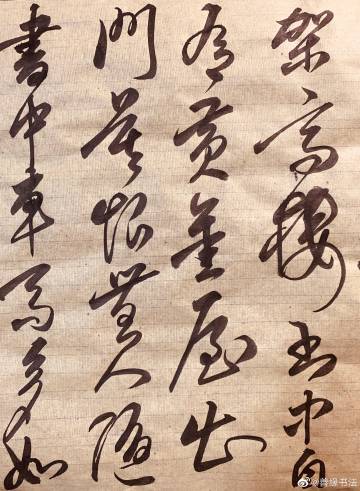 架高楼书中自
有黄金屋出
门莫恨无人随
书中车马多如
@普缘书法